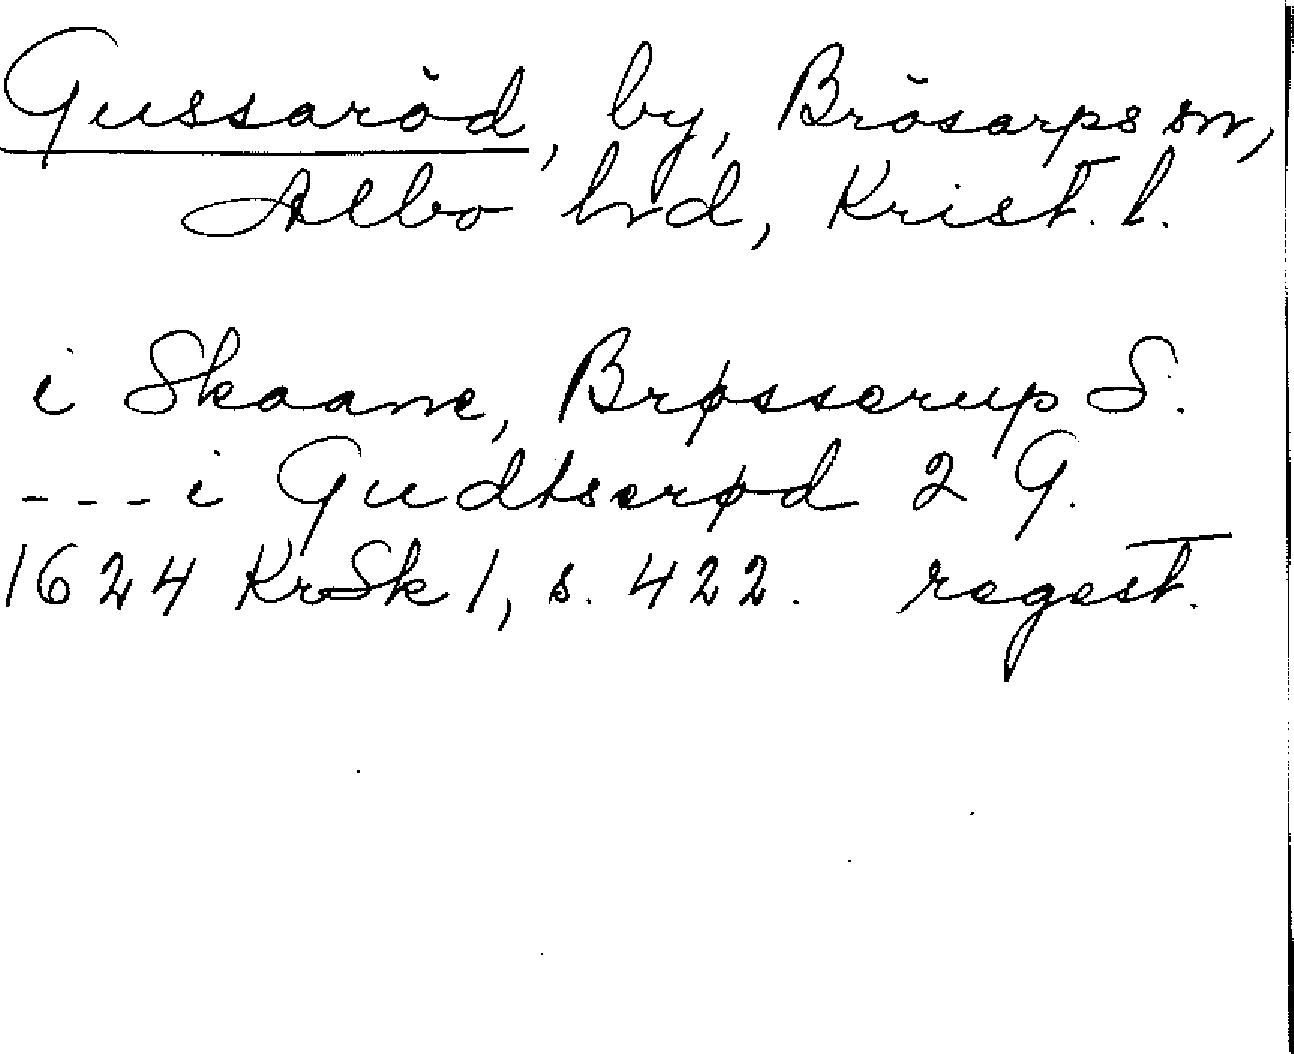 Gussaröd, by, Brösarps sn,
Albo hrd, Krist. l.
i Skaane, Brøsserup S.
--- i Gudtserød 2 G.
1624 KrSk 1, s. 422. regest.